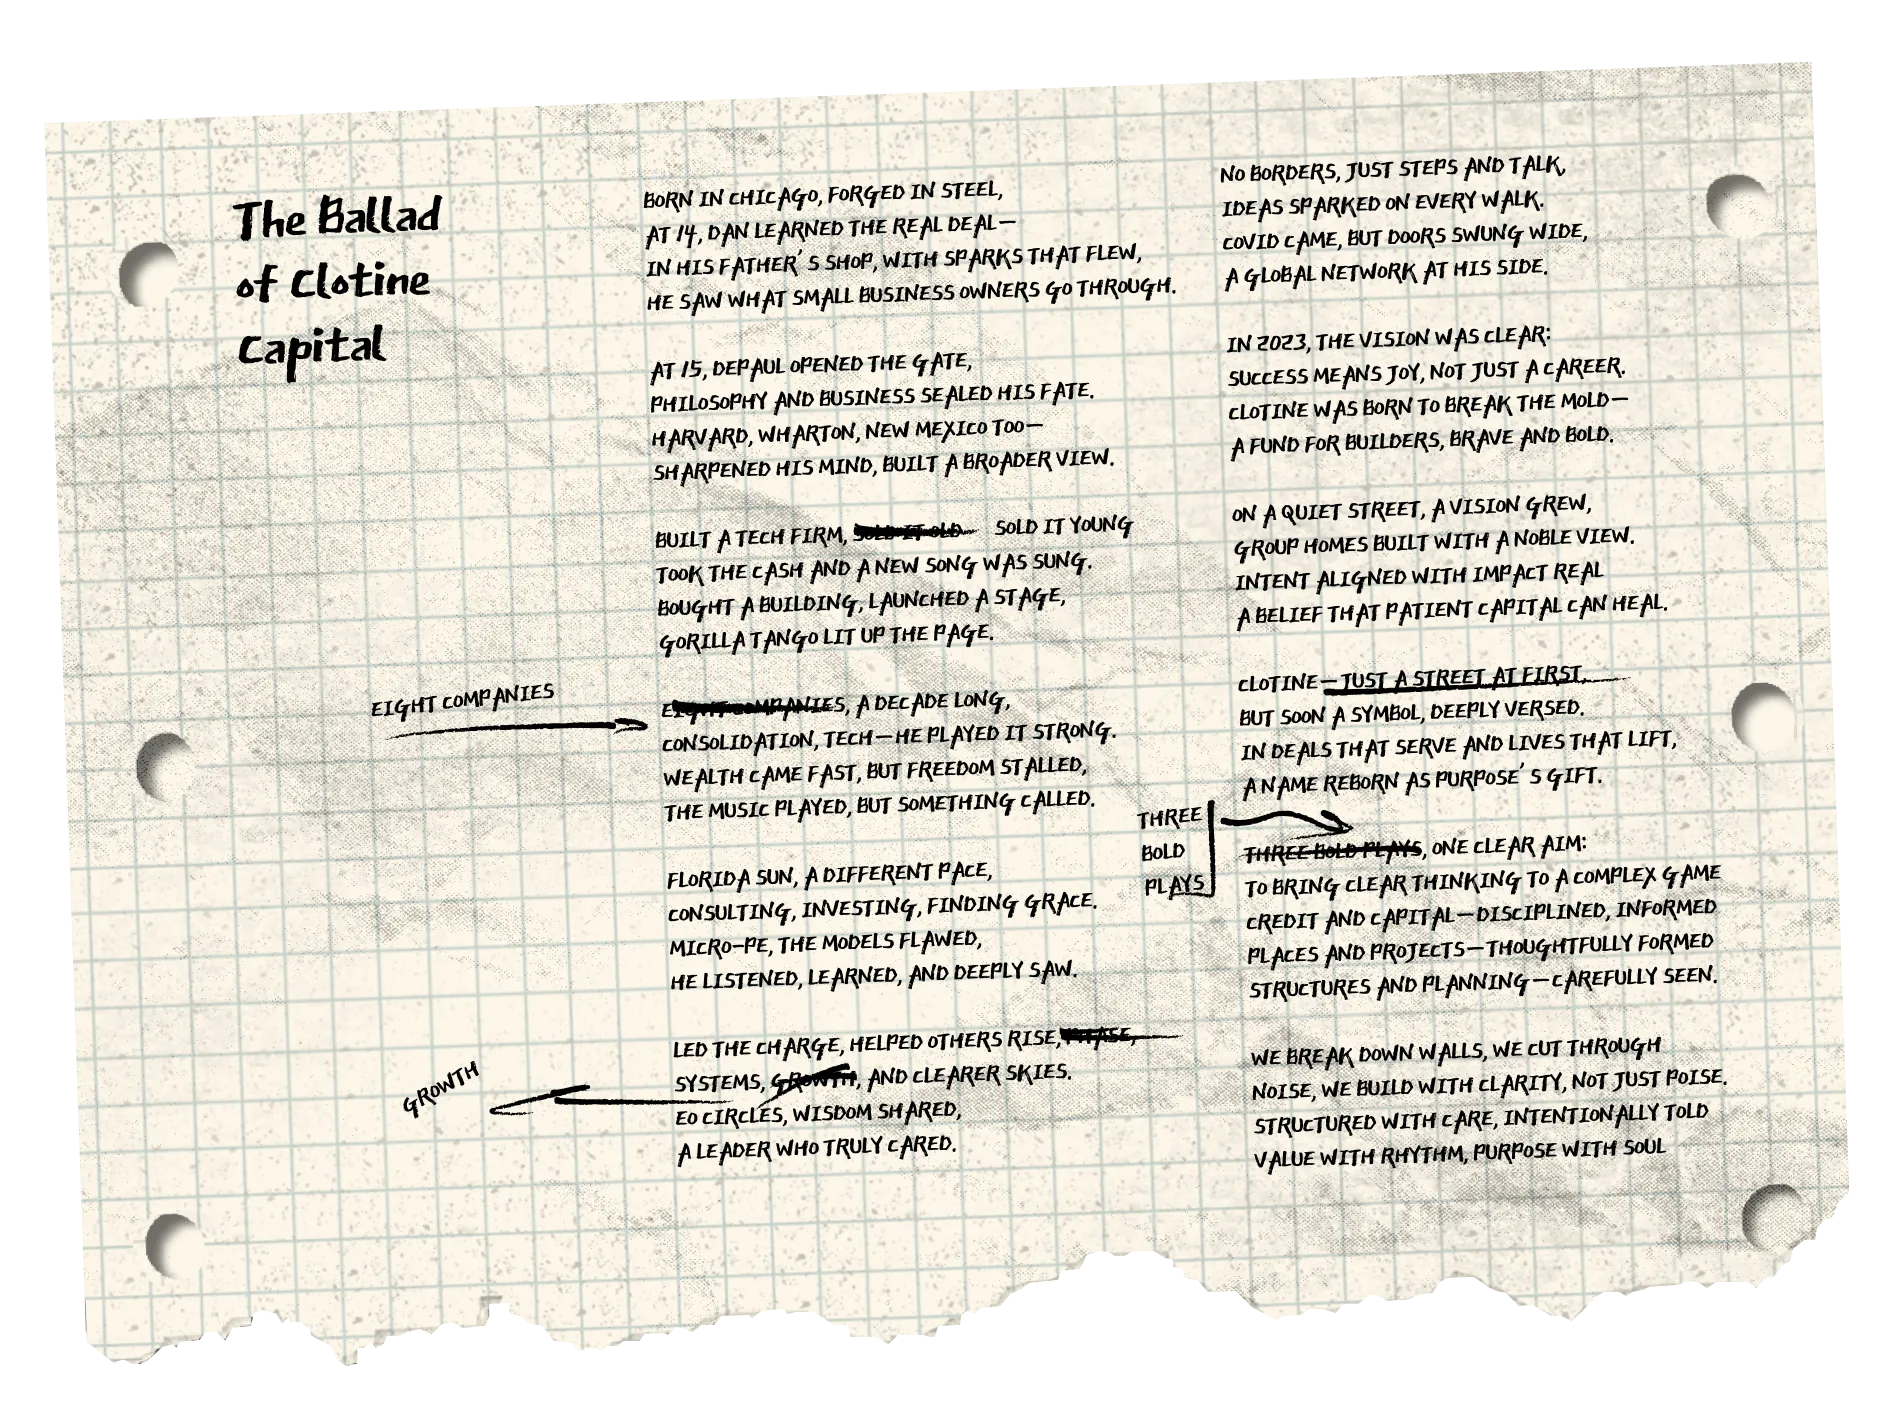 The Ballad
of Clotine
Capital
BORN IN CHICAGO, FORGED IN STEEL,
AT 14, DAN LEARNED THE REAL DEAL—
IN HIS FATHER'S SHOP, WITH SPARKS THAT FLEW,
HE SAW WHAT SMALL BUSINESS OWNERS GO THROUGH.
AT 15, DEPAUL OPENED THE GATE,
PHILOSOPHY AND BUSINESS SEALED HIS FATE.
HARVARD, WHARTON, NEW MEXICO TOO—
SHARPENED HIS MIND, BUILT A BROADER VIEW.
BUILT A TECH FIRM, SOLD IT OLD SOLD IT YOUNG
TOOK THE CASH AND A NEW SONG WAS SUNG.
BOUGHT A BUILDING, LAUNCHED A STAGE,
GORILLA TANGO LIT UP THE PAGE.
EIGHT COMPANIES
EIGHT COMPANIES, A DECADE LONG,
CONSOLIDATION, TECH—HE PLAYED IT STRONG.
WEALTH CAME FAST, BUT FREEDOM STALLED,
THE MUSIC PLAYED, BUT SOMETHING CALLED.
FLORIDA SUN, A DIFFERENT PACE,
CONSULTING, INVESTING, FINDING GRACE.
MICRO-PE, THE MODELS FLAWED,
HE LISTENED, LEARNED, AND DEEPLY SAW.
LED THE CHARGE, HELPED OTHERS RISE,
GROWTH
SYSTEMS, GROWTH, AND CLEARER SKIES.
EO CIRCLES, WISDOM SHARED,
A LEADER WHO TRULY CARED.
NO BORDERS, JUST STEPS AND TALK,
IDEAS SPARKED ON EVERY WALK.
COVID CAME, BUT DOORS SWUNG WIDE,
A GLOBAL NETWORK AT HIS SIDE.
IN 2023, THE VISION WAS CLEAR:
SUCCESS MEANS JOY, NOT JUST A CAREER.
CLOTINE WAS BORN TO BREAK THE MOLD—
A FUND FOR BUILDERS, BRAVE AND BOLD.
ON A QUIET STREET, A VISION GREW,
GROUP HOMES BUILT WITH A NOBLE VIEW.
INTENT ALIGNED WITH IMPACT REAL
A BELIEF THAT PATIENT CAPITAL CAN HEAL.
CLOTINE—JUST A STREET AT FIRST,
BUT SOON A SYMBOL, DEEPLY VERSED.
IN DEALS THAT SERVE AND LIVES THAT LIFT,
A NAME REBORN AS PURPOSE'S GIFT.
THREE
BOLD
PLAYS
THREE BOLD PLAYS, ONE CLEAR AIM:
TO BRING CLEAR THINKING TO A COMPLEX GAME
CREDIT AND CAPITAL—DISCIPLINED, INFORMED
PLACES AND PROJECTS—THOUGHTFULLY FORMED
STRUCTURES AND PLANNING—CAREFULLY SEEN.
WE BREAK DOWN WALLS, WE CUT THROUGH
NOISE, WE BUILD WITH CLARITY, NOT JUST POISE.
STRUCTURED WITH CARE, INTENTIONALLY TOLD
VALUE WITH RHYTHM, PURPOSE WITH SOUL